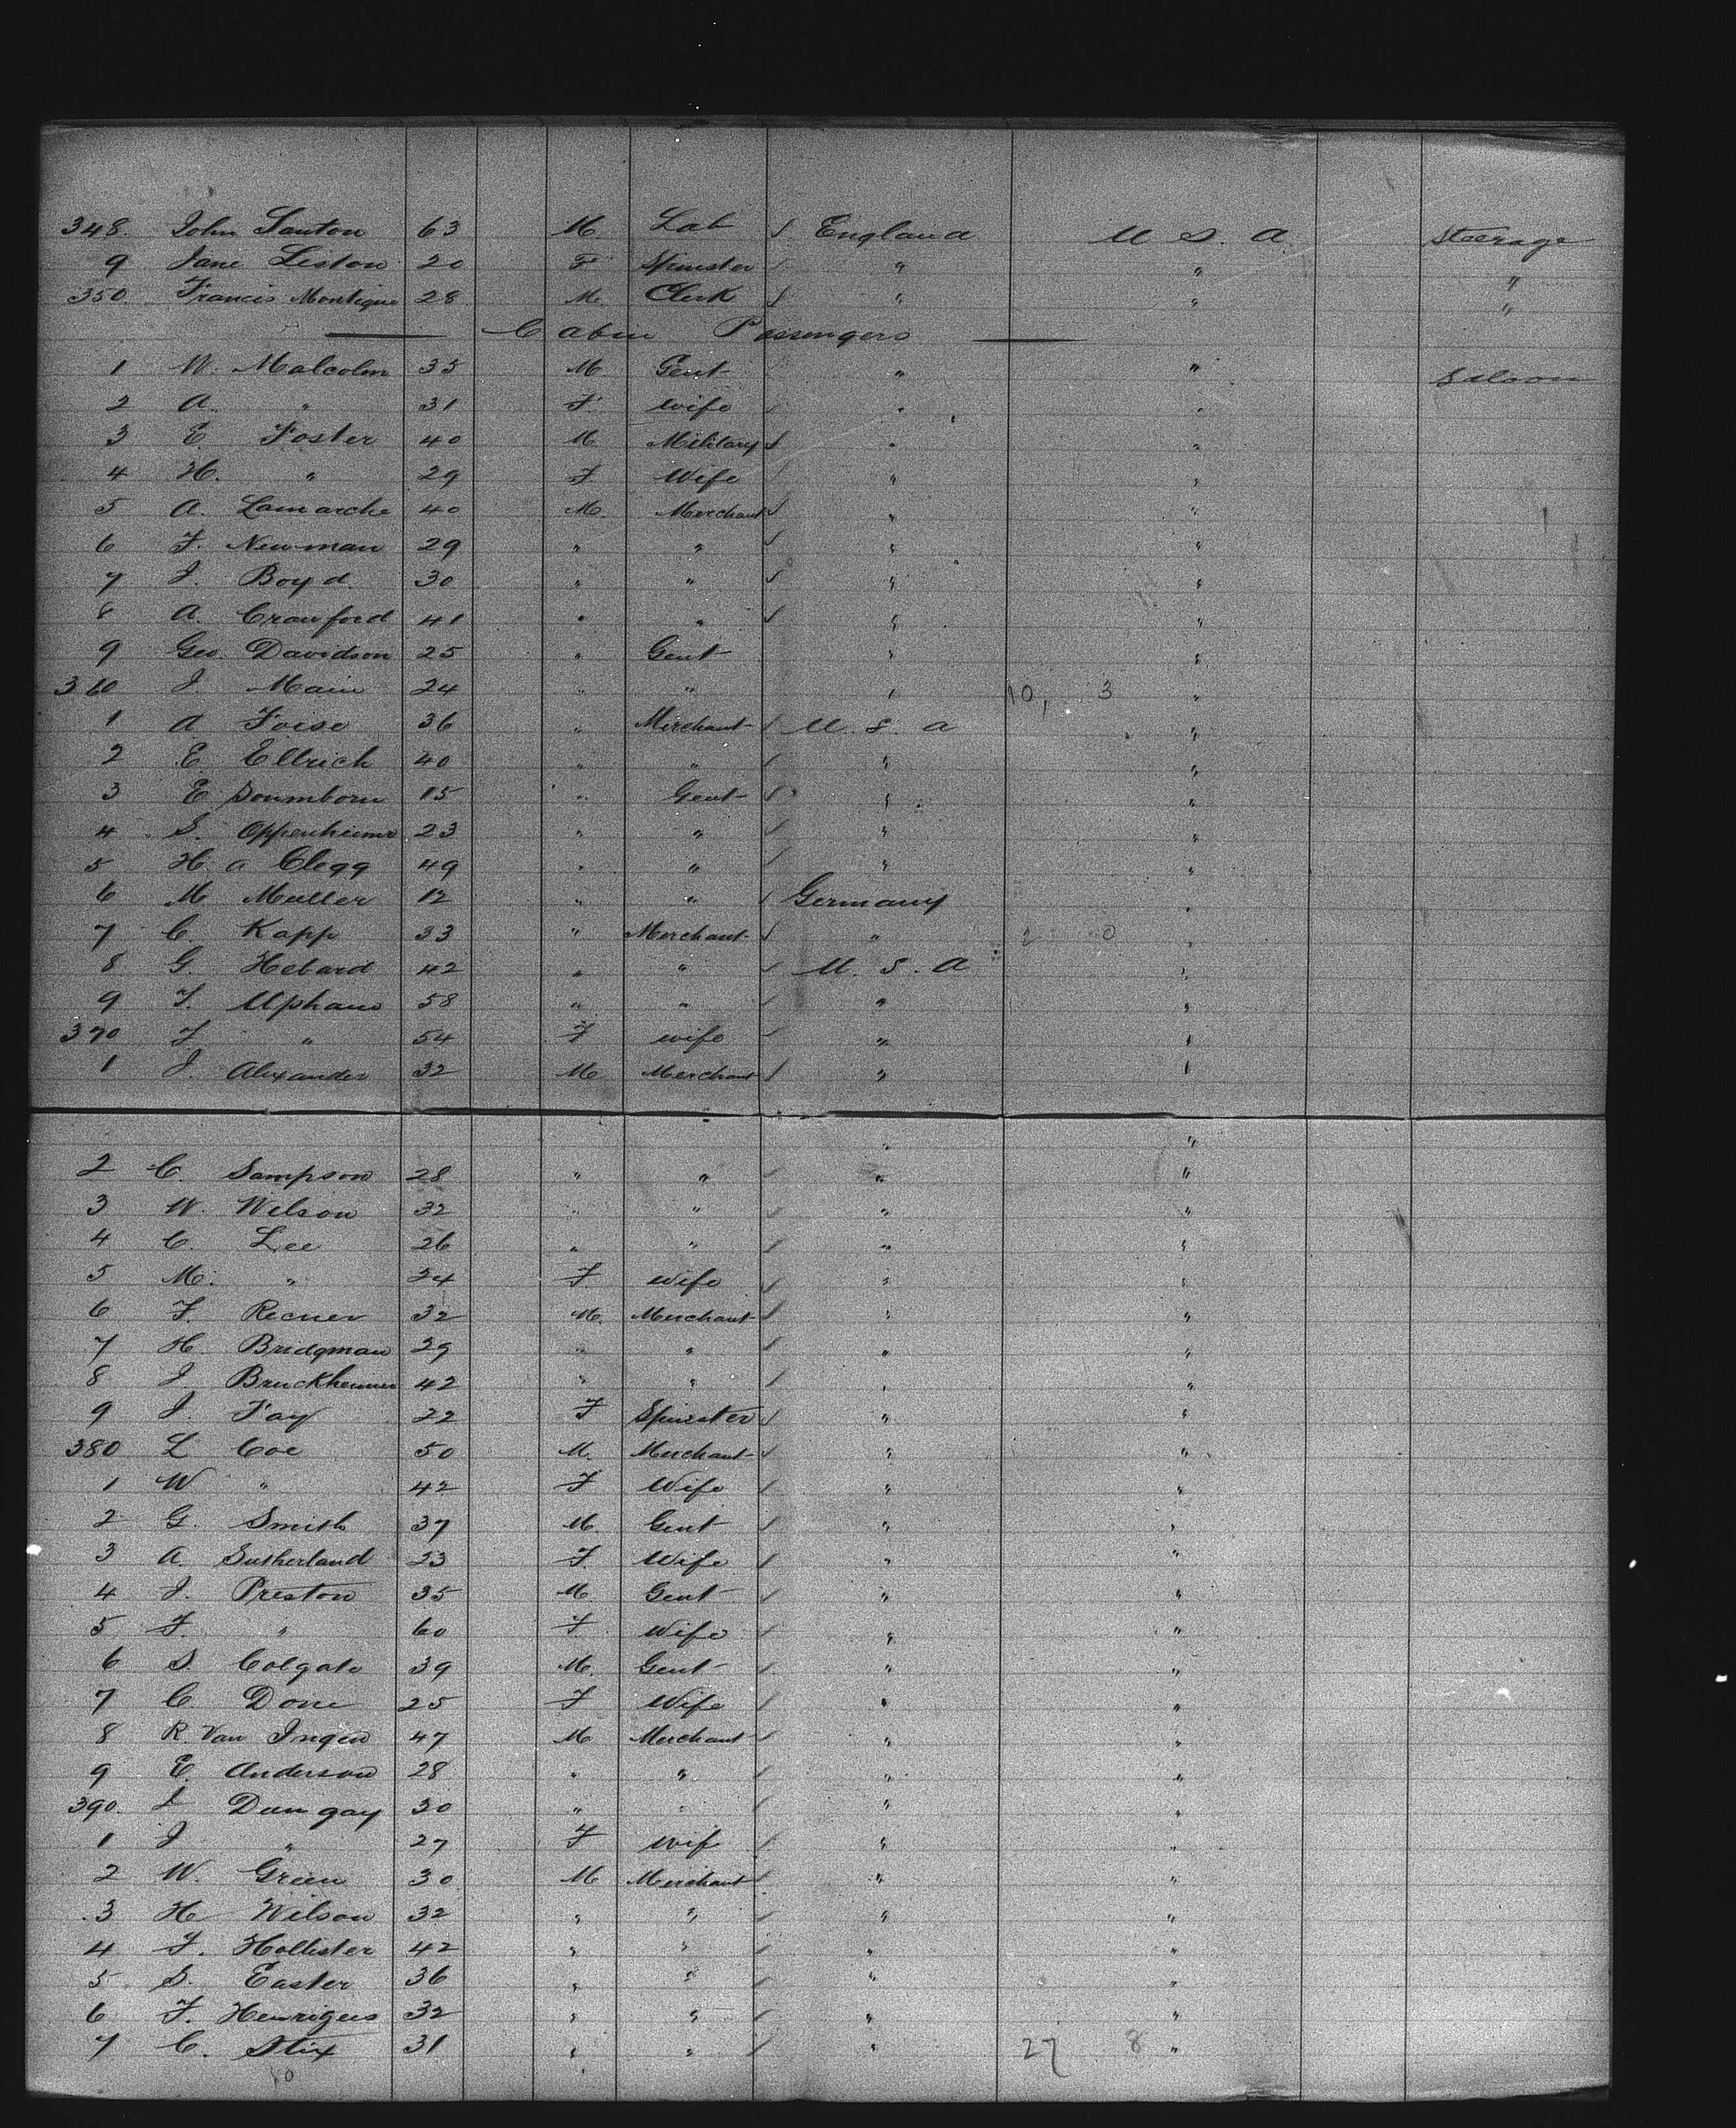 348. John Santon 63 M. Lab England U S. A. Steerage
9 Jane Liston 20 F Spinster " " "
350. Francis Montique 28 M. Clerk " " "
Cabin Passengers
1 W. Malcolm 35 M. Gent " " Saloon
2 A. " 31 F. Wife " "
3 E. Foster 40 M Military " "
4 H. " 29 F Wife " "
5 A. Lamarche 40 M. Merchant " "
6 F. Newman 29 " " " "
7 J. Boyd 30 " " " "
8 A. Crawford 41 " " " "
9 Geo. Davidson 25 " Gent " "
360 J. Main 24 " " " 10, 3 "
1 A 36 " Merchant U. S. A "
2 E Ellrich 40 " " " "
3 E 15 " Gent " "
4 S. Oppenheimer 23 " " " "
5 H. a Clegg 49 " " " "
6 M Muller 12 " " Germany "
7 C. Kapp 33 " Merchant " 2 0 "
8 G. Hebard 42 " " U. S. A "
9 F. Upham 58 " " " "
370 F " 54 F Wife " "
1 J. Alexander 32 M Merchant " "
" "
2 C. Sampson 28 " " " "
3 W. Wilson 32 " " " "
4 C. Lee 26 " " " "
5 M. " 24 F Wife " "
6 F. 32 M. Merchant " "
7 H. Bridgman 29 " " " "
8 J Bruckheimer 42 " " " "
9 J. Fay 22 F Spinster " "
380 L Coe 50 M. Merchant " "
1 W " 42 F Wife " "
2 G. Smith 37 M. Gent " "
3 A. Sutherland 23 F. Wife " "
4 J. Preston 35 M. Gent " "
5 F. " 60 F Wife " "
6 S. Colgate 39 M. Gent " "
7 C. Done 25 F Wife " "
8 R. Van Ingen 47 M Merchant " "
9 E. Anderson 28 " " " "
390. J Dungay 30 " " " "
1 J " 27 F Wife " "
2 W. Green 30 M Merchant " "
3 H Wilson 32 " " " "
4 F. Hollister 42 " " " "
5 S. Easter 36 " " " "
6 F. Henriques 32 " " " "
7 C. Stix 31 " " " 27 8 "